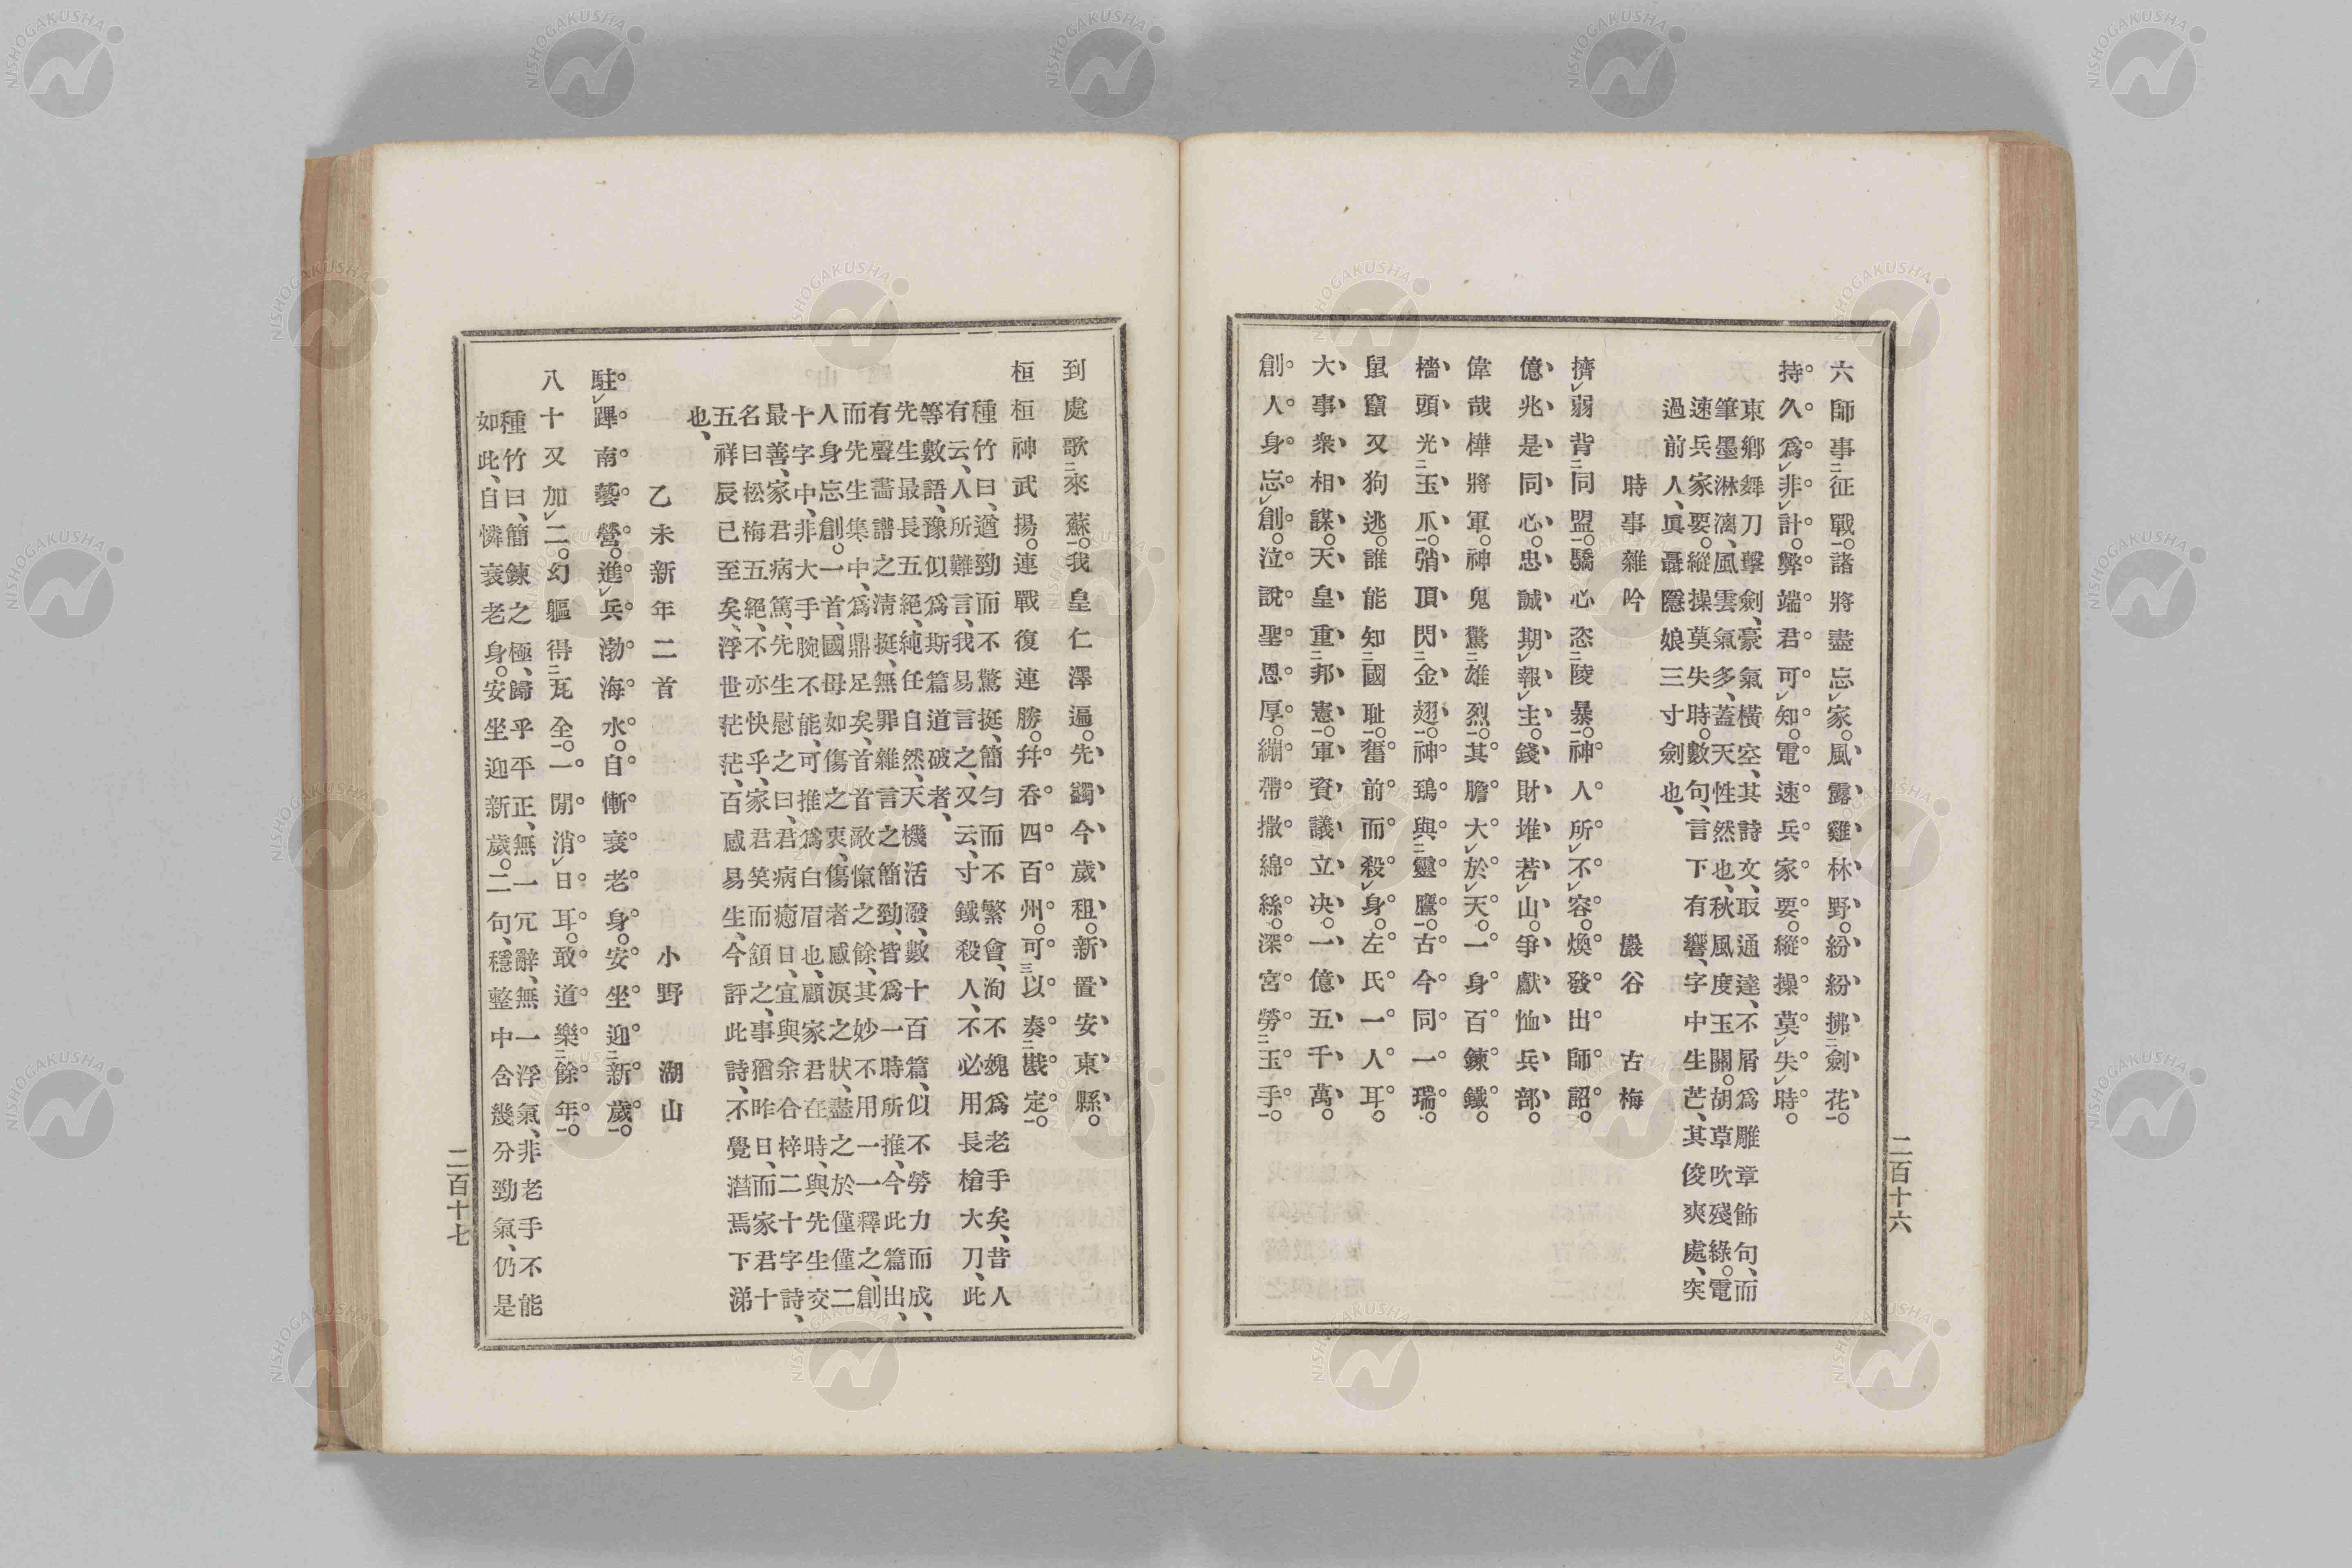 六師事征戰。諸將盡忘家。風露雞林野、紛紛拂劍花。
持久爲非計。弊端君可知。電速兵家要。縱操莫失時。
東鄉舞刀擊劍、豪氣橫空、其詩文、取通達、不屑爲雕章飾句、而
筆墨淋漓、風雲氣多、蓋天性然也、秋風度玉關。胡草吹殘綠。電
速兵家要。縱操莫失時。數句、言下有響、字中生芒、其俊爽處、突
過前人、眞聶隱娘三寸劍也、
時事雜吟 巖谷古梅
擠弱背同盟。驕心恣陵暴。神人所不容。煥發出師詔。
億兆是同心。忠誠期報主。錢財堆若山。爭獻恤兵部。
偉哉樺將軍。神鬼驚雄烈。其膽大於天。一身百鍊鐵。
檣頭光玉爪。弰頂閃金翅。神鵄與靈鷹。古今同一瑞。
鼠竄又狗逃。誰能知國耻。奮前而殺身。左氏一人耳。
大事衆相謀。天皇重邦憲。軍資議立决。一億五千萬。
創人身忘創。泣說聖恩厚。繃帶撒綿絲。深宮勞玉手。
二百十六
到處歌來蘇。我皇仁澤遍。先蠲今歲租。新置安東縣。
桓桓神武揚。連戰復連勝。幷呑四百州。可以奏戡定。
種竹曰、遒勁而不驚挺、簡勻而不繁會、洵不媿爲老手矣、昔人
有云、人所難言、我易言之、又云、寸鐵殺人、不必用長槍大刀、此
等數語、豫似爲斯篇道破者、
先生最長五絕、純任自然、天機活潑、數十百篇、似不勞力而成、
有聲畵譜之清挺、無罪雜言之簡勁、皆爲一時所推、今此篇出、
而先生集中、爲鼎足矣、首首敵愾之餘、其妙不用一一釋之、創
人身忘創。一首、國母如傷之衷、傷者感淚之狀、盡之於僅僅二
十字中、非大手腕不能、可推爲白眉也、顧家君在時、與先生交
最善、家君病篤、先生慰之曰、君病癒日、宜與余合梓二十字詩、
名曰松梅五絕、不亦快乎、家君笑而頷之、事猶昨日、而家君十
五祥辰已至矣、浮世茫茫、百感易生、今評此詩、不覺潸焉下涕
也、
乙未新年二首 小野湖山
駐蹕南藝營。進兵渤海水。自慚衰老身。安坐迎新歲。
八十又加二。幻軀得瓦全。一閒消日耳。敢道樂餘年。
種竹曰、簡鍊之極、歸乎平正、無一冗辭、無一浮氣、非老手不能
如此、自憐衰老身。安坐迎新歲。二句、穩整中含幾分勁氣、仍是
二百十七
NISHOGAKUSHA